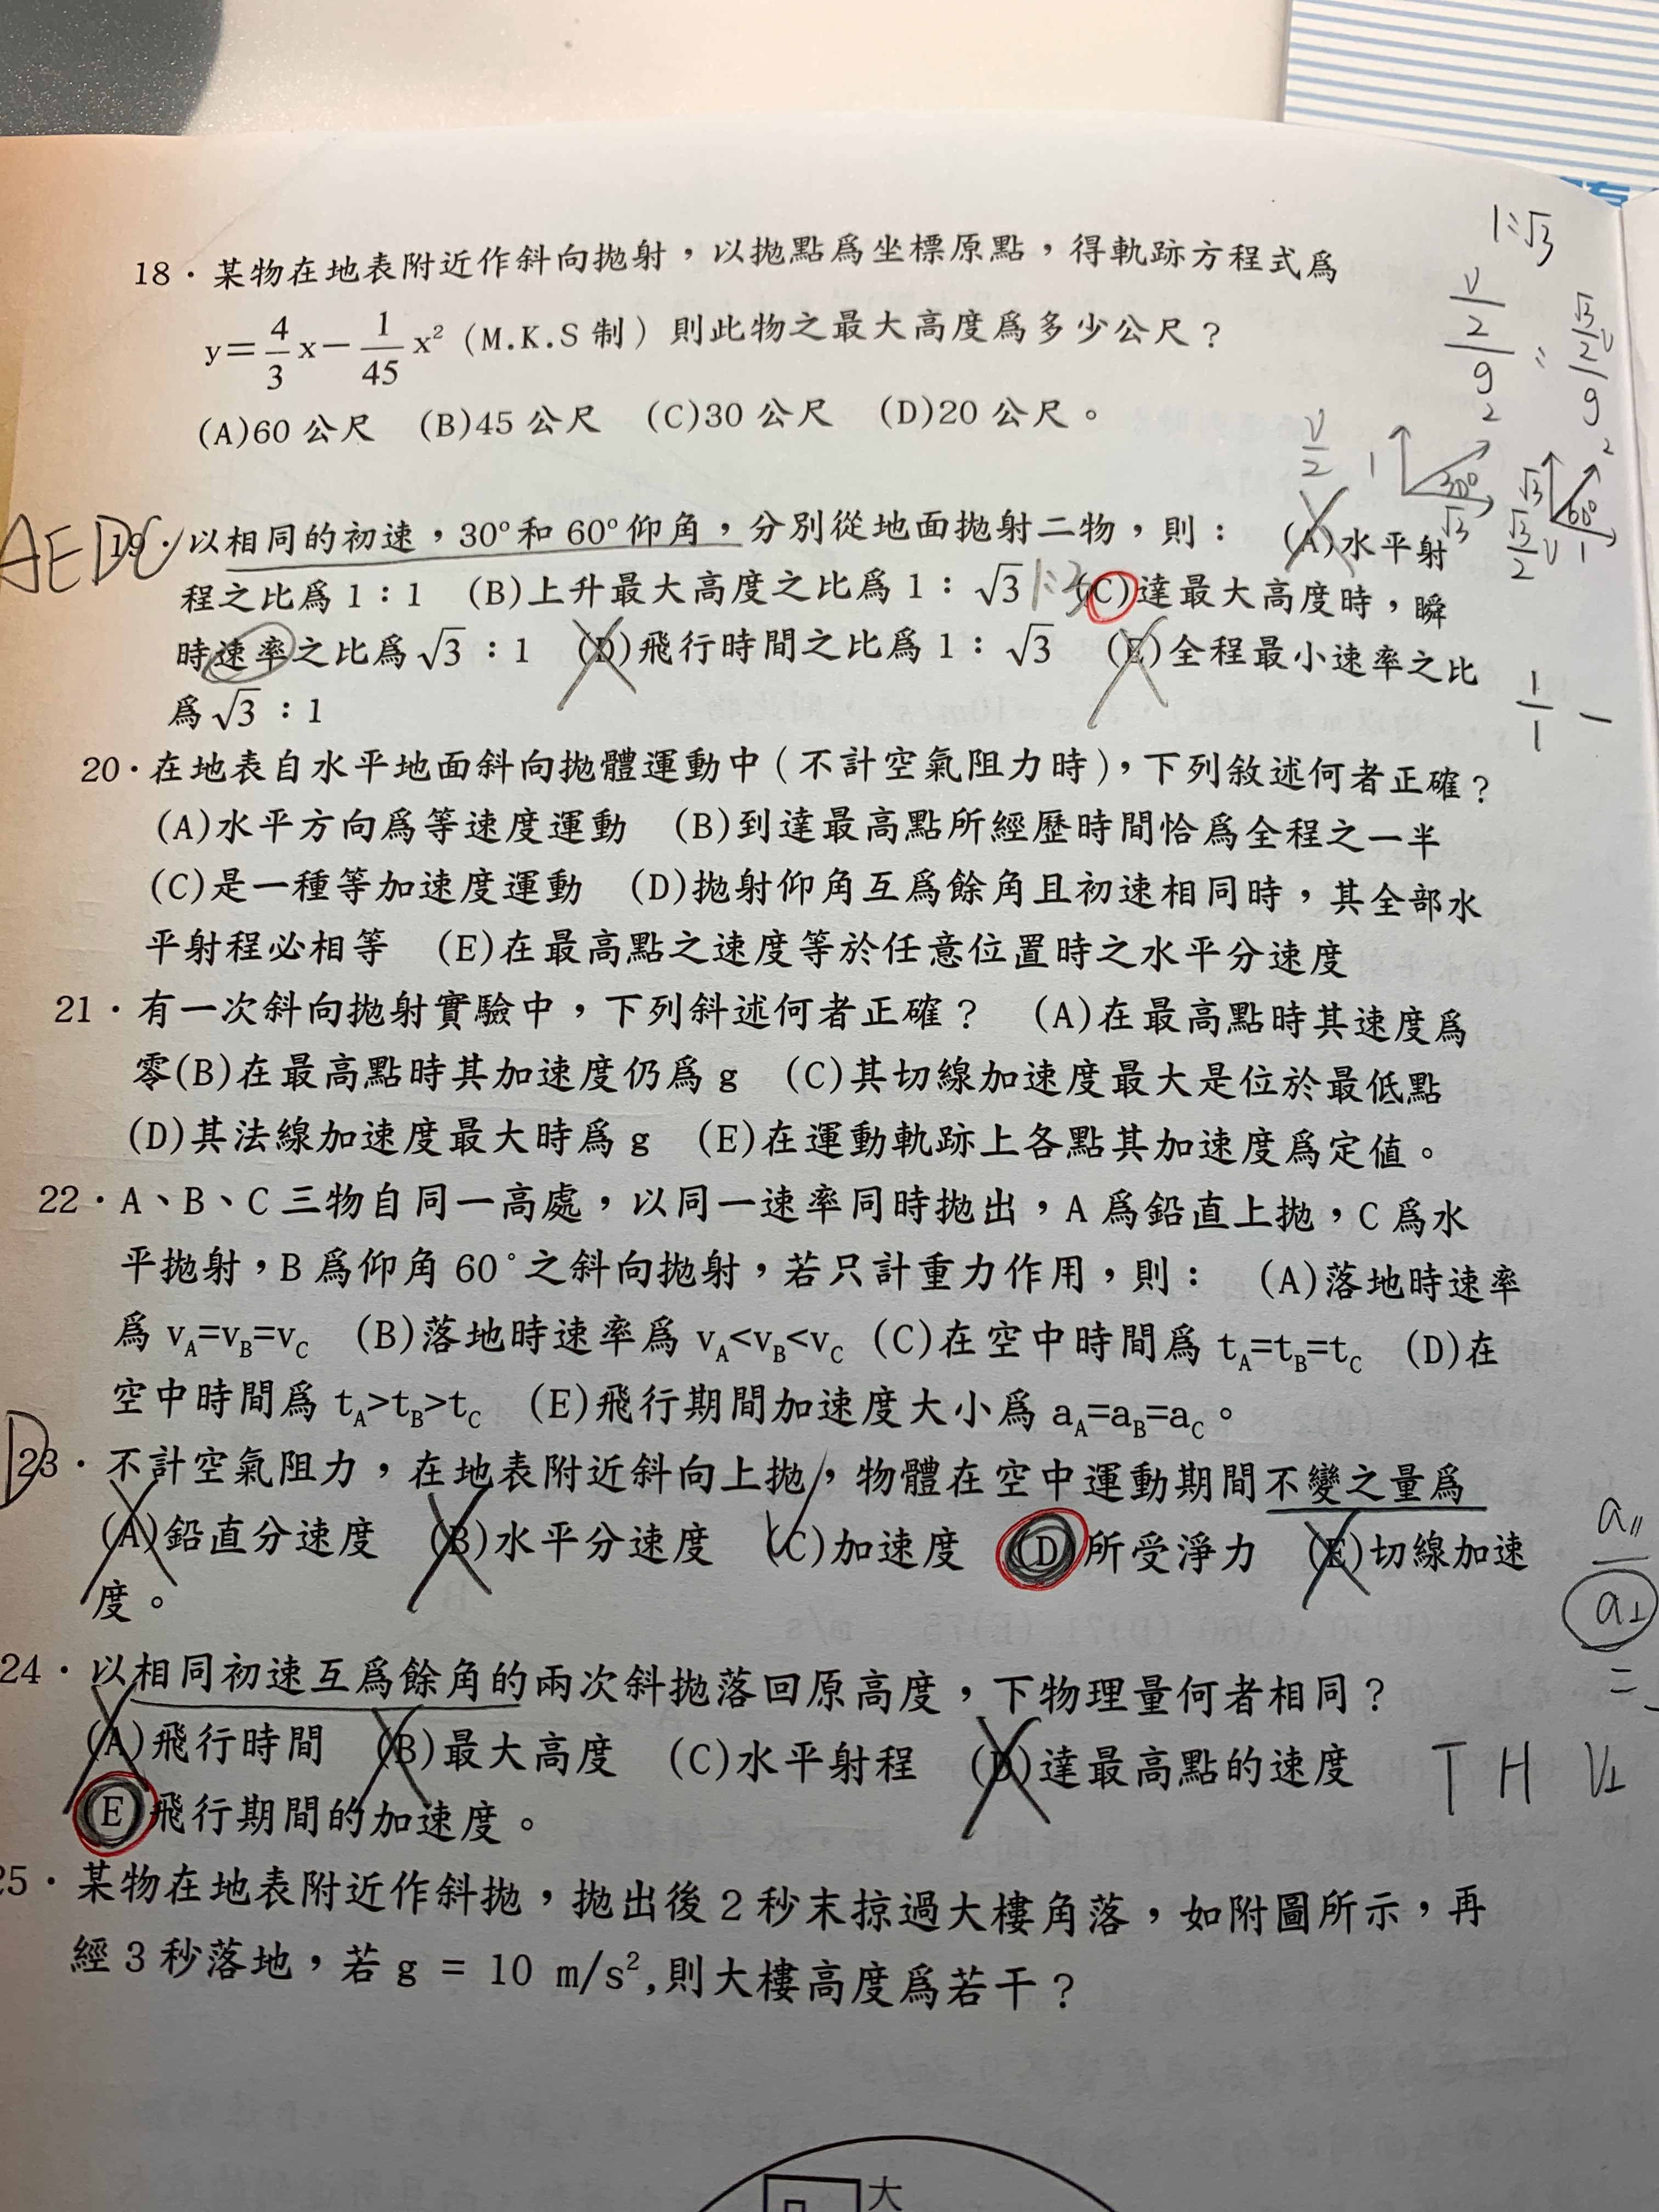 18．某物在地表附近作斜向拋射，以拋點爲坐標原點，得軌跡方程式爲
y=4/3 x－1/45 x² (M.K.S 制) 則此物之最大高度爲多少公尺？
(A)60 公尺 (B)45 公尺 (C)30 公尺 (D)20 公尺。
1:√3
v/2/g : √3/2 v/g
v/2 1 2 30° √3
√3/2 v √3 2 60° 1
AEDC
19．以相同的初速，30°和 60°仰角，分別從地面拋射二物，則： (A)水平射
程之比爲 1：1 (B)上升最大高度之比爲 1：√3 1:3 (C)達最大高度時，瞬
時速率之比爲√3：1 (D)飛行時間之比爲 1：√3 (E)全程最小速率之比
爲√3：1
1/1
20．在地表自水平地面斜向拋體運動中(不計空氣阻力時)，下列敘述何者正確？
(A)水平方向爲等速度運動 (B)到達最高點所經歷時間恰爲全程之一半
(C)是一種等加速度運動 (D)拋射仰角互爲餘角且初速相同時，其全部水
平射程必相等 (E)在最高點之速度等於任意位置時之水平分速度
21．有一次斜向拋射實驗中，下列斜述何者正確？ (A)在最高點時其速度爲
零(B)在最高點時其加速度仍爲 g (C)其切線加速度最大是位於最低點
(D)其法線加速度最大時爲 g (E)在運動軌跡上各點其加速度爲定值。
22．A、B、C 三物自同一高處，以同一速率同時拋出，A 爲鉛直上拋，C 爲水
平拋射，B 爲仰角 60°之斜向拋射，若只計重力作用，則： (A)落地時速率
爲 vA=vB=vC (B)落地時速率爲 vA<vB<vC (C)在空中時間爲 tA=tB=tC (D)在
空中時間爲 tA>tB>tC (E)飛行期間加速度大小爲 aA=aB=aC。
D
23．不計空氣阻力，在地表附近斜向上拋，物體在空中運動期間不變之量爲
(A)鉛直分速度 (B)水平分速度 (C)加速度 (D)所受淨力 (E)切線加速
度。
a∥
a⊥
24．以相同初速互爲餘角的兩次斜拋落回原高度，下物理量何者相同？
(A)飛行時間 (B)最大高度 (C)水平射程 (D)達最高點的速度
T H V⊥
(E)飛行期間的加速度。
25．某物在地表附近作斜拋，拋出後 2 秒末掠過大樓角落，如附圖所示，再
經 3 秒落地，若 g = 10 m/s²,則大樓高度爲若干？
大